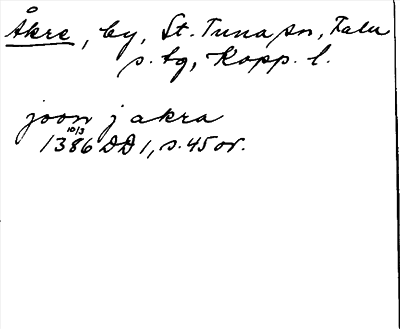 Åkre, by, St. Tuna sn, Falu
s. tg, Kopp. l.
joon j akra
10/3
1386 DD 1, s. 45 or.